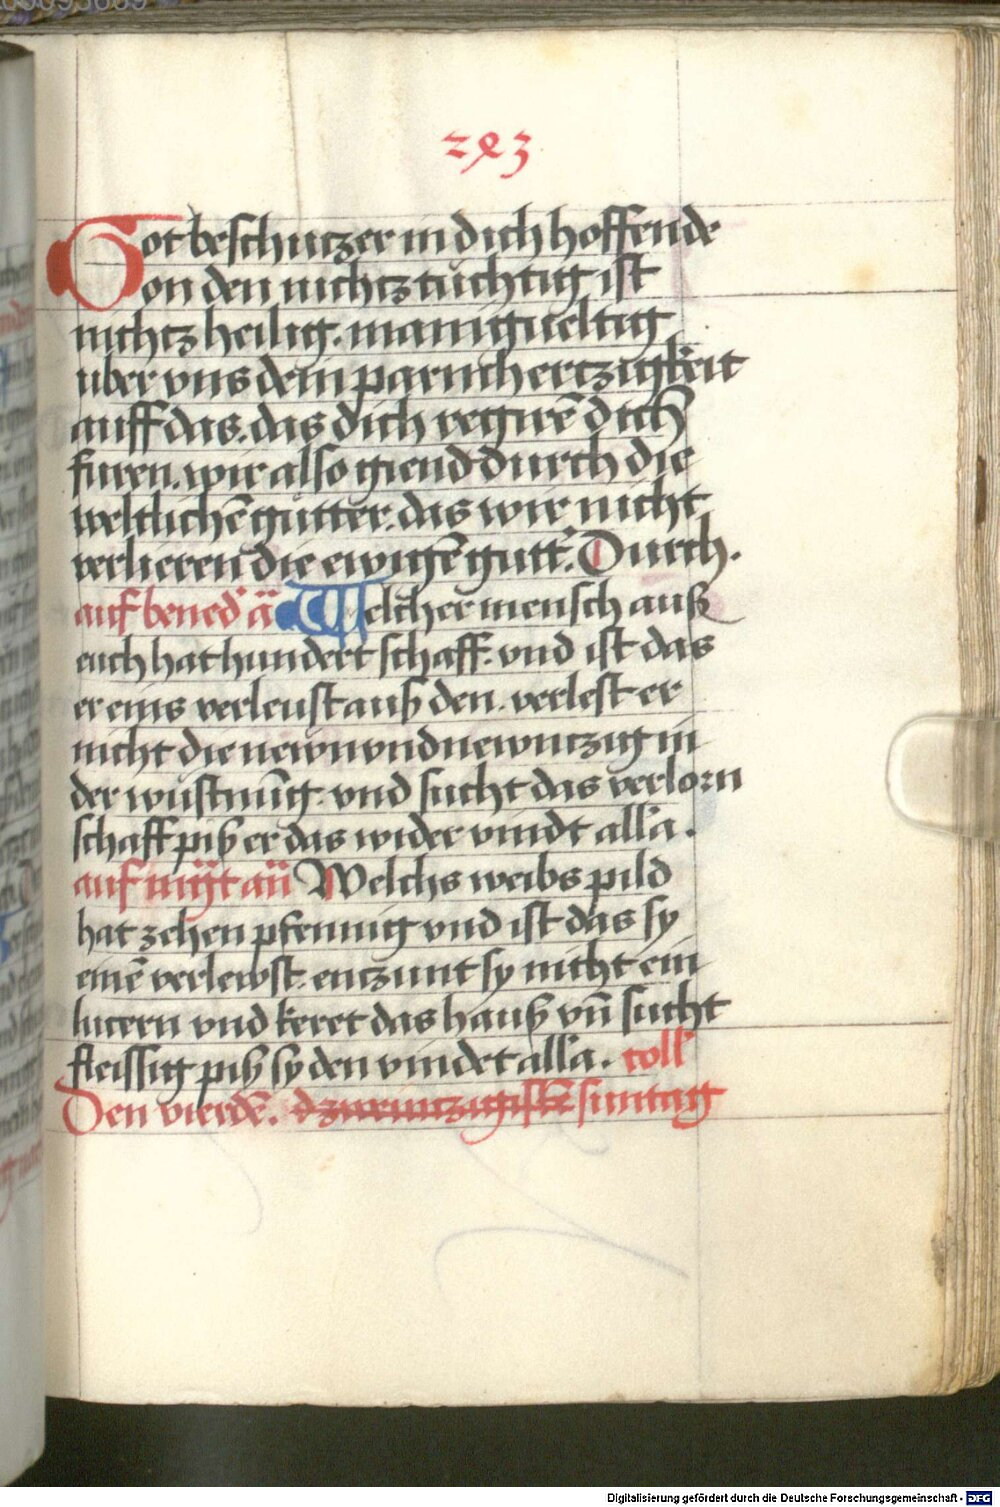 293
Got beschutzer in dich hoffende
on den nichtz tüchtig ist
nichtz heilig. manigueltig
uber vns dein parmhertzigkeit
auff das. das dich regirē dich
furen. wir also giend durch die
weltlichē gütter. das wir nicht
verlieren die ewigē gutt. Durch.
auf bened ā Welcher mensch auß
euch hat hundert schaff. vnd ist das
er eins verleust auß den. verlest er
nicht die newn vnd newntzig in
der wüstnūg. vnd sucht das verlorn
schaff piß er das wider vindt alla.
auf mgt an Welchs weibs pild
hat zehen pfennig vnd ist das sy
einē verlewst. entzunt sy nicht ein
lucern vnd keret das hauß vn̄ sucht
fleissig piß sy den vindet alla. coll
Den vierdē. suntag
Digitalisierung gefördert durch die Deutsche Forschungsgemeinschaft - DFG